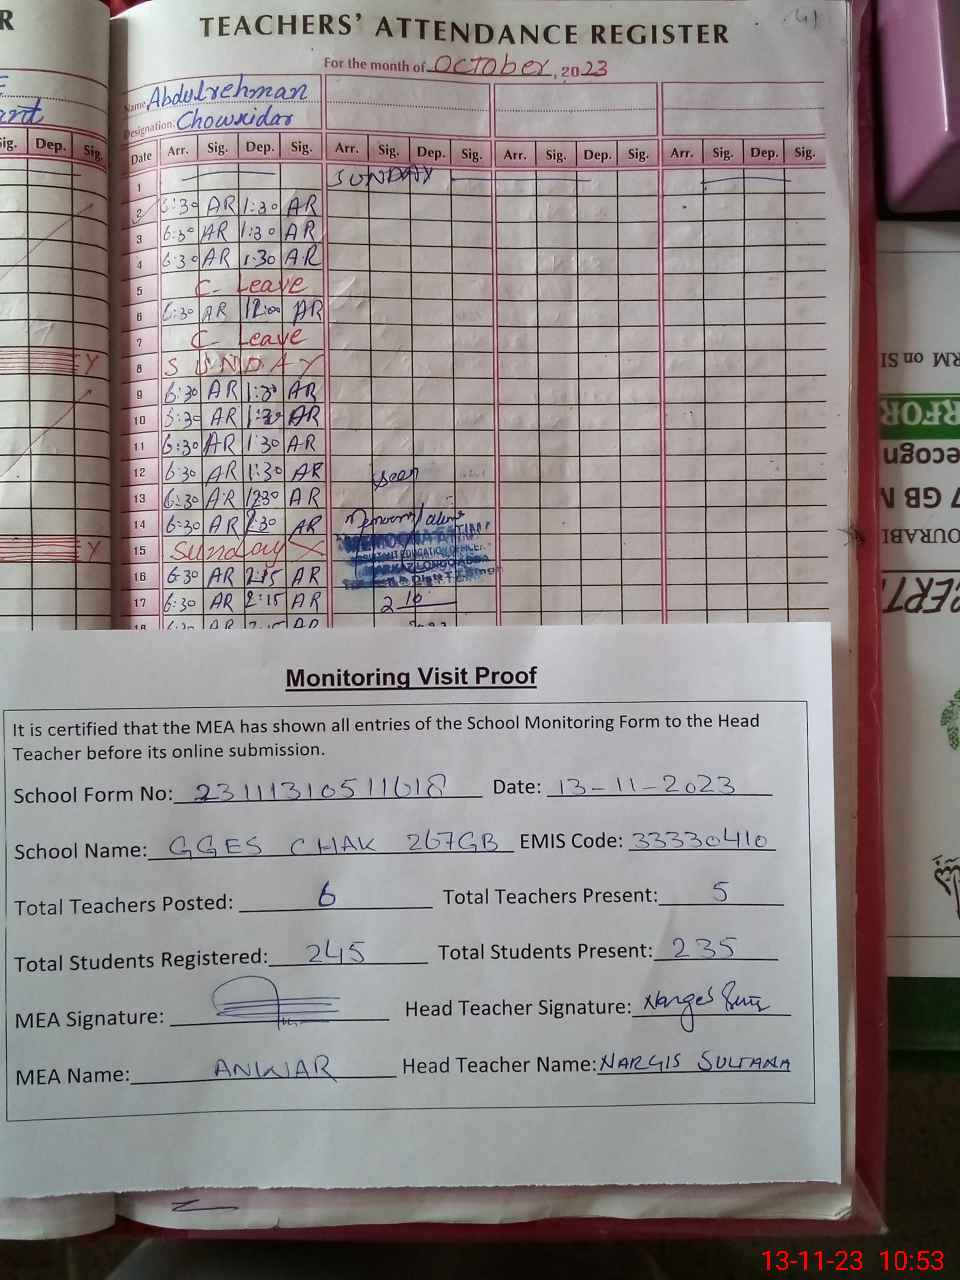 TEACHERS' ATTENDANCE REGISTER
For the month of October, 2023
Name Abdulrehman
Designation. Chowkidar
Sig. Dep. Sig.
Date Arr. Sig. Dep. Sig. Arr. Sig. Dep. Sig. Arr. Sig. Dep. Sig. Arr. Sig. Dep. Sig.
1 SUNDAY
2 6:30 AR 1:30 AR
3 6:30 AR 1:30 AR
4 6:30 AR 1:30 AR
5 C- Leave
6 6:30 AR 12:00 AR
7 C- Leave
8 SUNDAY
9 6:30 AR 1:30 AR
10 AR 1:30 AR
11 6:30 AR 1:30 AR
12 6:30 AR 1:30 AR
Seen
13 6:30 AR 1230 AR
14 6:30 AR AR
15 Sunday
16 6:30 AR 2:15 AR
17 6:30 AR 2:15 AR
2 10
18 AR AR
Monitoring Visit Proof
It is certified that the MEA has shown all entries of the School Monitoring Form to the Head
Teacher before its online submission.
School Form No: 23111310511618 Date: 13-11-2023
School Name: GGES CHAK 267GB EMIS Code: 33330410
Total Teachers Posted: 6 Total Teachers Present: 5
Total Students Registered: 245 Total Students Present: 235
MEA Signature: Head Teacher Signature:
MEA Name: ANWAR Head Teacher Name: NARGIS SULTANA
RM on SI
RFOR
ecogn
7 GB N
OURABI
CERT
13-11-23 10:53